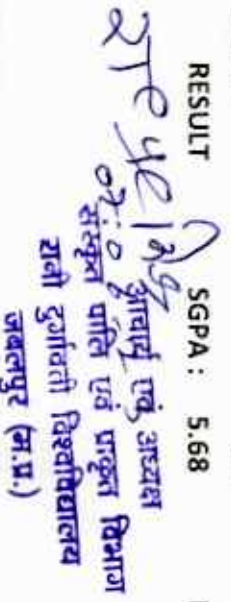 RESULT SGPA : 5.68
आचार्य एवं अध्यक्ष
संस्कृत पालि एवं प्राकृत विभाग
रानी दुर्गावती विश्वविद्यालय
जबलपुर (म.प्र.)